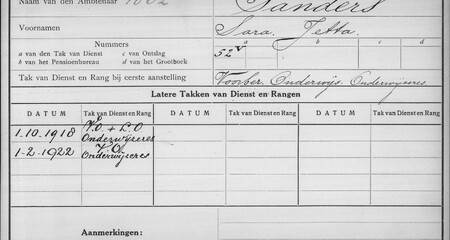 Naam van den Ambtenaar 1002 Sanders
Voornamen Sara Jetta.
Nummers a b c d
a van den Tak van Dienst c van Ontslag 52
b van het Pensioenbureau d van het Grootboek
Tak van Dienst en Rang bij eerste aanstelling Voorber. Onderwijs. Onderwijzeres
Latere Takken van Dienst en Rangen
DATUM Tak van Dienst en Rang DATUM Tak van Dienst en Rang DATUM Tak van Dienst en Rang
1.10.1918 V.O. + L.O
Onderwijzeres
1-2-1922 V.O.
Onderwijzeres
Aanmerkingen: